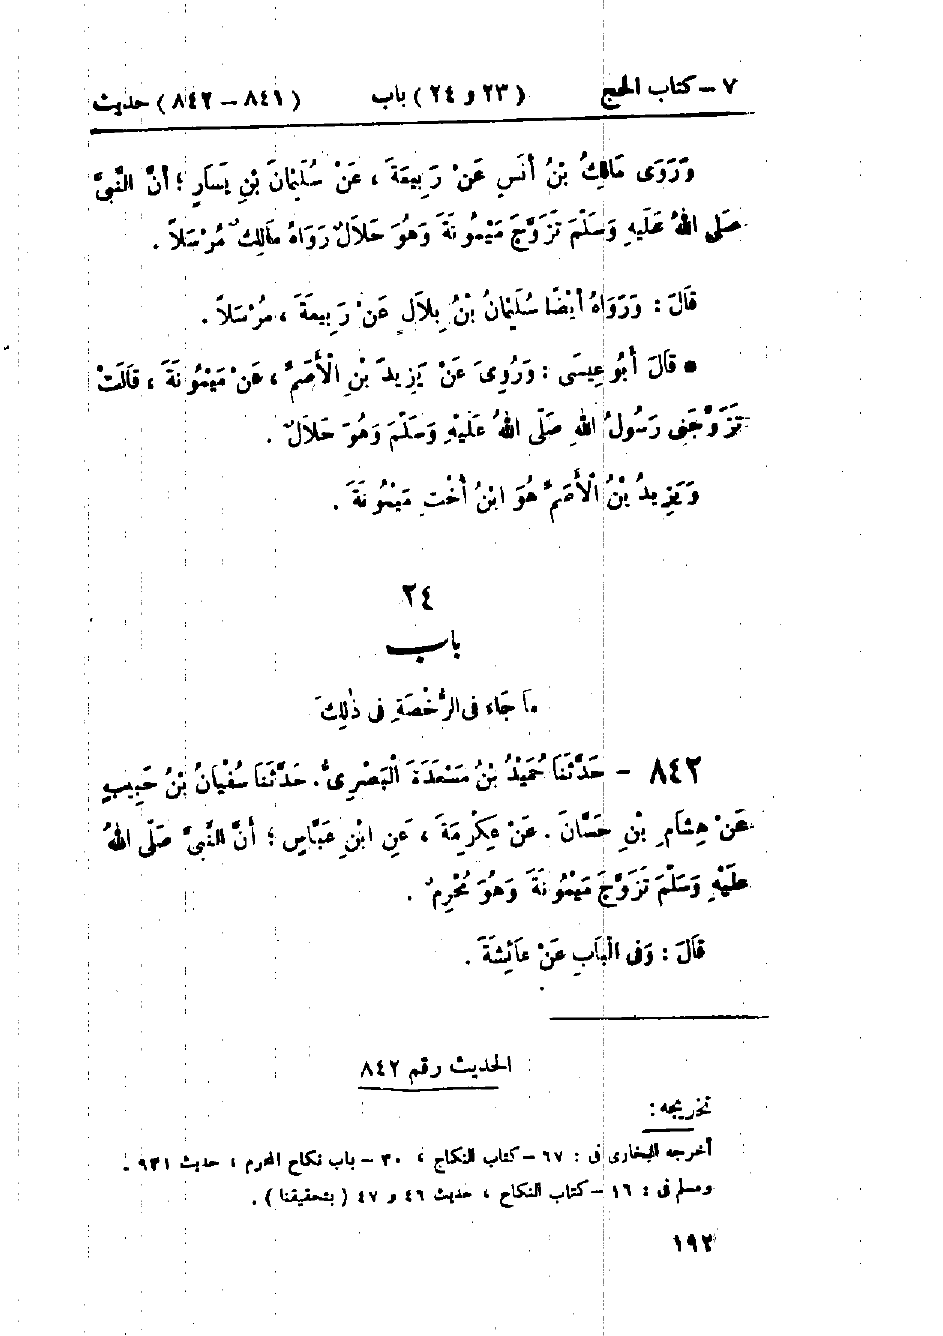 ٧ – كتاب الحج (٢٣ و ٢٤) باب (٨٤١ – ٨٤٢) حديث
وَرَوَى مَالِكُ بْنُ أَنَسٍ عَنْ رَبِيعَةَ ، عَنْ سُلَيْمَانَ بْنِ يَسَارٍ ؛ أَنَّ النَّبِيَّ
صَلَّى اللهُ عَلَيْهِ وَسَلَّمَ تَزَوَّجَ مَيْمُونَةَ وَهُوَ حَلَالٌ رَوَاهُ مَالِكٌ مُرْسَلاً .
قَالَ : وَرَوَاهُ أَيْضًا سُلَيْمَانُ بْنُ بِلَالٍ عَنْ رَبِيعَةَ ، مُرْسَلاً .
● قَالَ أَبُو عِيسَى : وَرُوِىَ عَنْ يَزِيدَ بْنِ الْأَصَمِّ ، عَنْ مَيْمُونَةَ ، قَالَتْ
تَزَوَّجَنِى رَسُولُ اللهِ صَلَّى اللهُ عَلَيْهِ وَسَلَّمَ وَهُوَ حَلَالٌ .
وَيَزِيدُ بْنُ الْأَصَمِّ هُوَ ابْنُ أُخْتِ مَيْمُونَةَ .
٢٤
باب
مَا جَاءَ فِى الرُّخْصَةِ فِى ذٰلِكَ
٨٤٢ – حَدَّثَنَا حُمَيْدُ بْنُ مَسْعَدَةَ الْبَصْرِىُّ . حَدَّثَنَا سُفْيَانُ بْنُ حَبِيبٍ
عَنْ هِشَامِ بْنِ حَسَّانَ . عَنْ عِكْرِمَةَ ، عَنِ ابْنِ عَبَّاسٍ ؛ أَنَّ النَّبِيَّ صَلَّى اللهُ
عَلَيْهِ وَسَلَّمَ تَزَوَّجَ مَيْمُونَةَ وَهُوَ مُحْرِمٌ .
قَالَ : وَفِى الْبَابِ عَنْ عَائِشَةَ .
الحديث رقم ٨٤٢
تخريجه :
أخرجه البخارى فى : ٦٧ – كتاب النكاح ، ٣٠ – باب نكاح المحرم ، حديث ٩٣١ .
ومسلم فى : ١٦ – كتاب النكاح ، حديث ٤٦ و ٤٧ ( بتحقيقنا ) .
١٩٢